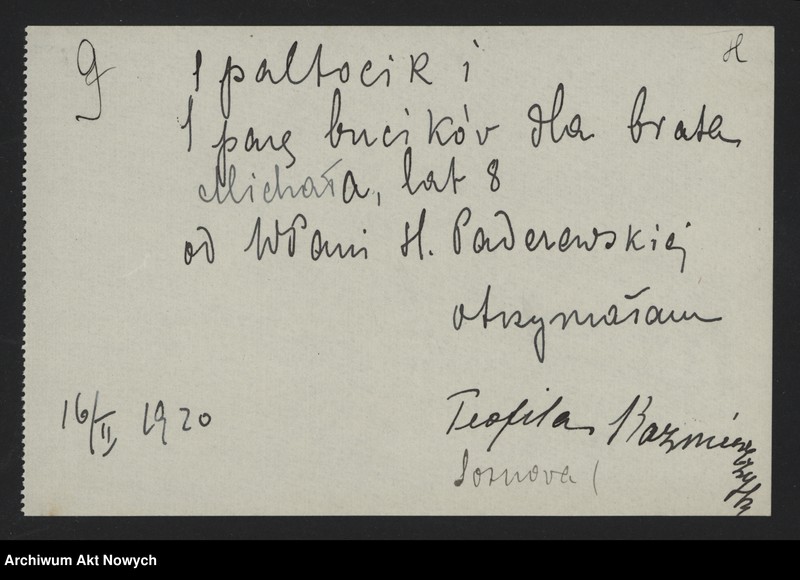 9
H
1 paltocik i
1 parę bucików dla brata
Michała, lat 8
od WPani H. Paderewskiej
otrzymałam
16/II 1920
Teofila
Sosnova (
Archiwum Akt Nowych